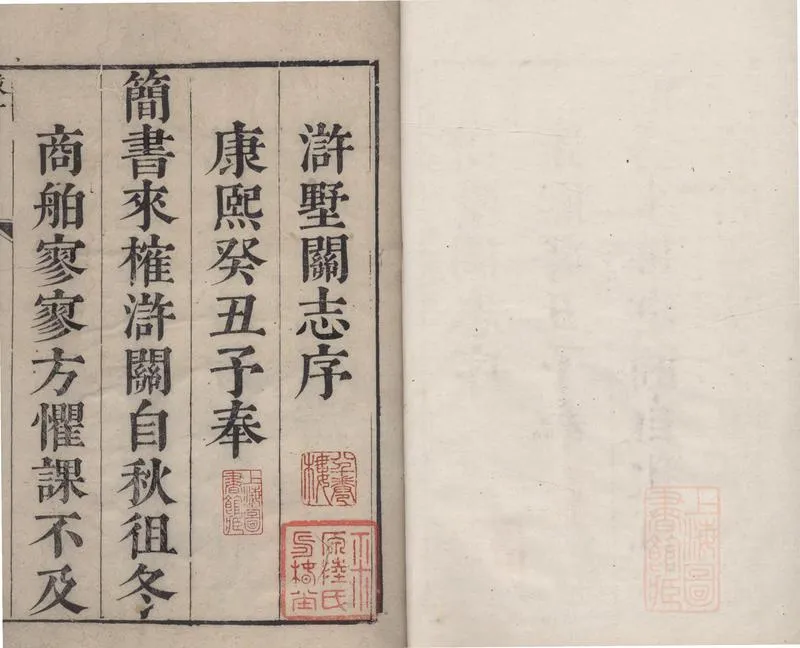 滸墅關志序
康熙癸丑予奉
簡書來榷滸關自秋徂冬
商舶寥寥方懼課不及
上海圖
書館臧
上海圖
書館臧